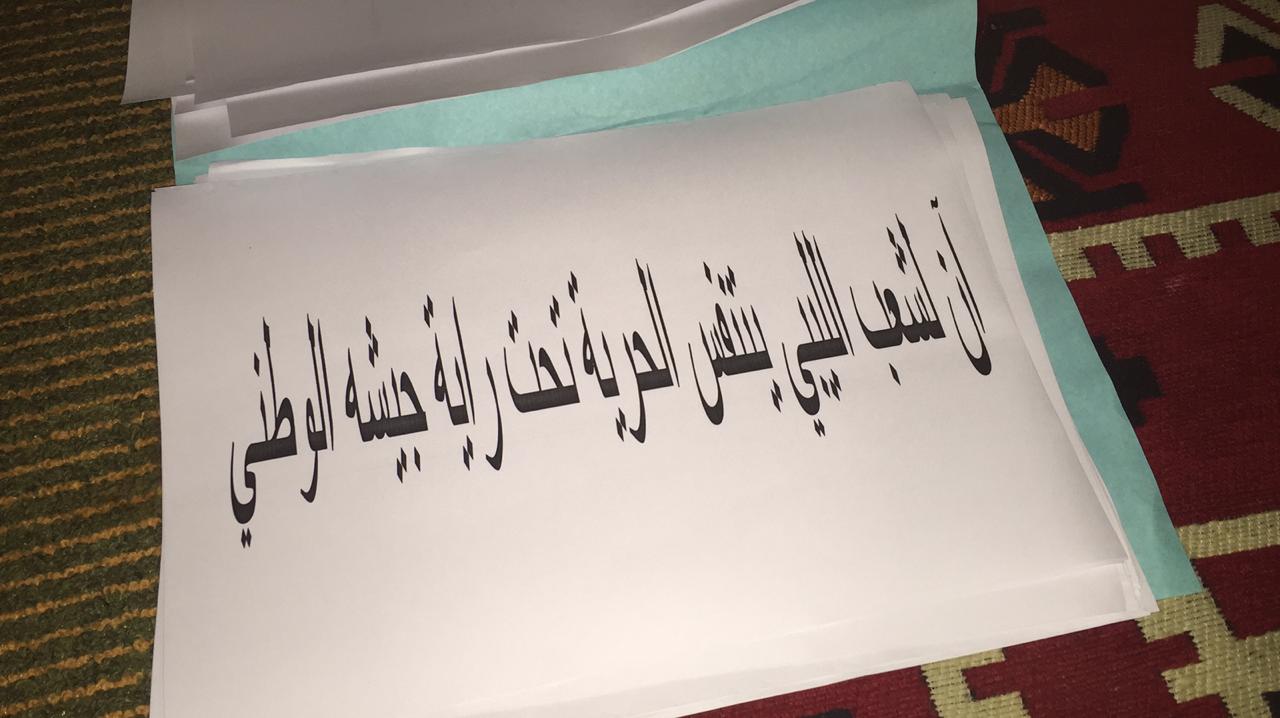 آن لشعب الليبي يتنفس الحرية تحت راية جيشه الوطني